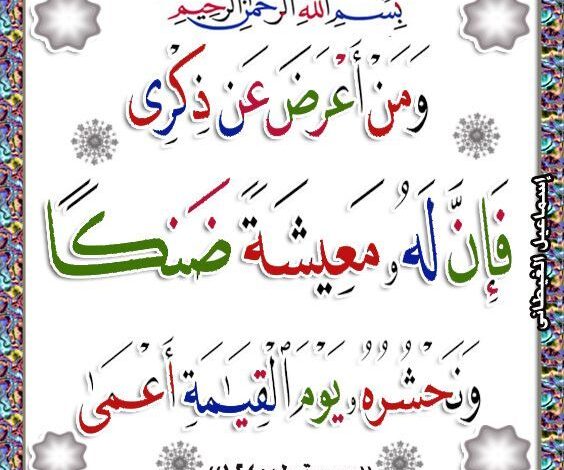 بِسْمِ اللهِ الرَّحْمَٰنِ الرَّحِيمِ
وَمَنْ أَعْرَضَ عَن ذِكْرِى
فَإِنَّ لَهُۥ مَعِيشَةً ضَنكًا
وَنَحْشُرُهُۥ يَوْمَ ٱلْقِيَٰمَةِ أَعْمَىٰ
إسماعيل الغيطانى